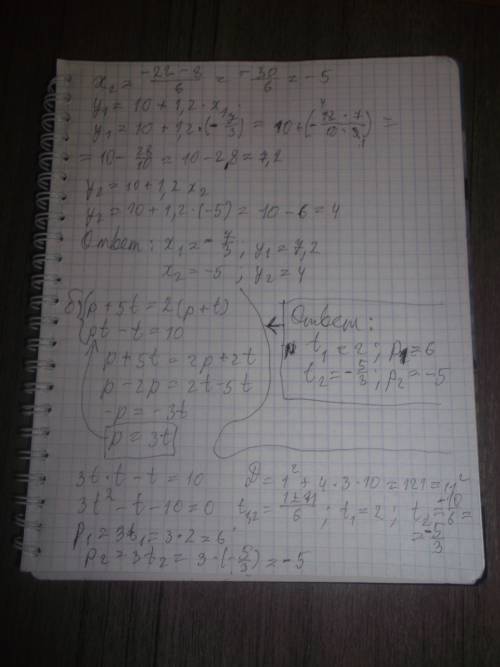 x₂ = (-22 - 8)/6 = -30/6 = -5
y₁ = 10 + 1,2 · x₁
y₁ = 10 + 1,2 · (-7/3) = 10 + (-12 · 7/10 · 3) =
= 10 - 28/10 = 10 - 2,8 = 7,2
y₂ = 10 + 1,2 x₂
y₂ = 10 + 1,2 · (-5) = 10 - 6 = 4
Ответ: x₁ = -7/3; y₁ = 7,2
x₂ = -5; y₂ = 4
б) { p + 5t = 2(p + t)
pt - t = 10
p + 5t = 2p + 2t
p - 2p = 2t - 5t
-p = -3t
p = 3t
Ответ:
t₁ = 2; p₁ = 6
t₂ = -5/3; p₂ = -5
3t · t - t = 10
3t² - t - 10 = 0
p₁ = 3t₁ = 3 · 2 = 6
p₂ = 3t₂ = 3 · (-5/3) = -5
D = 1² + 4 · 3 · 10 = 121 = 11²
t₁,₂ = (1 ± 11)/6; t₁ = 2; t₂ = -10/6 =
= -5/3